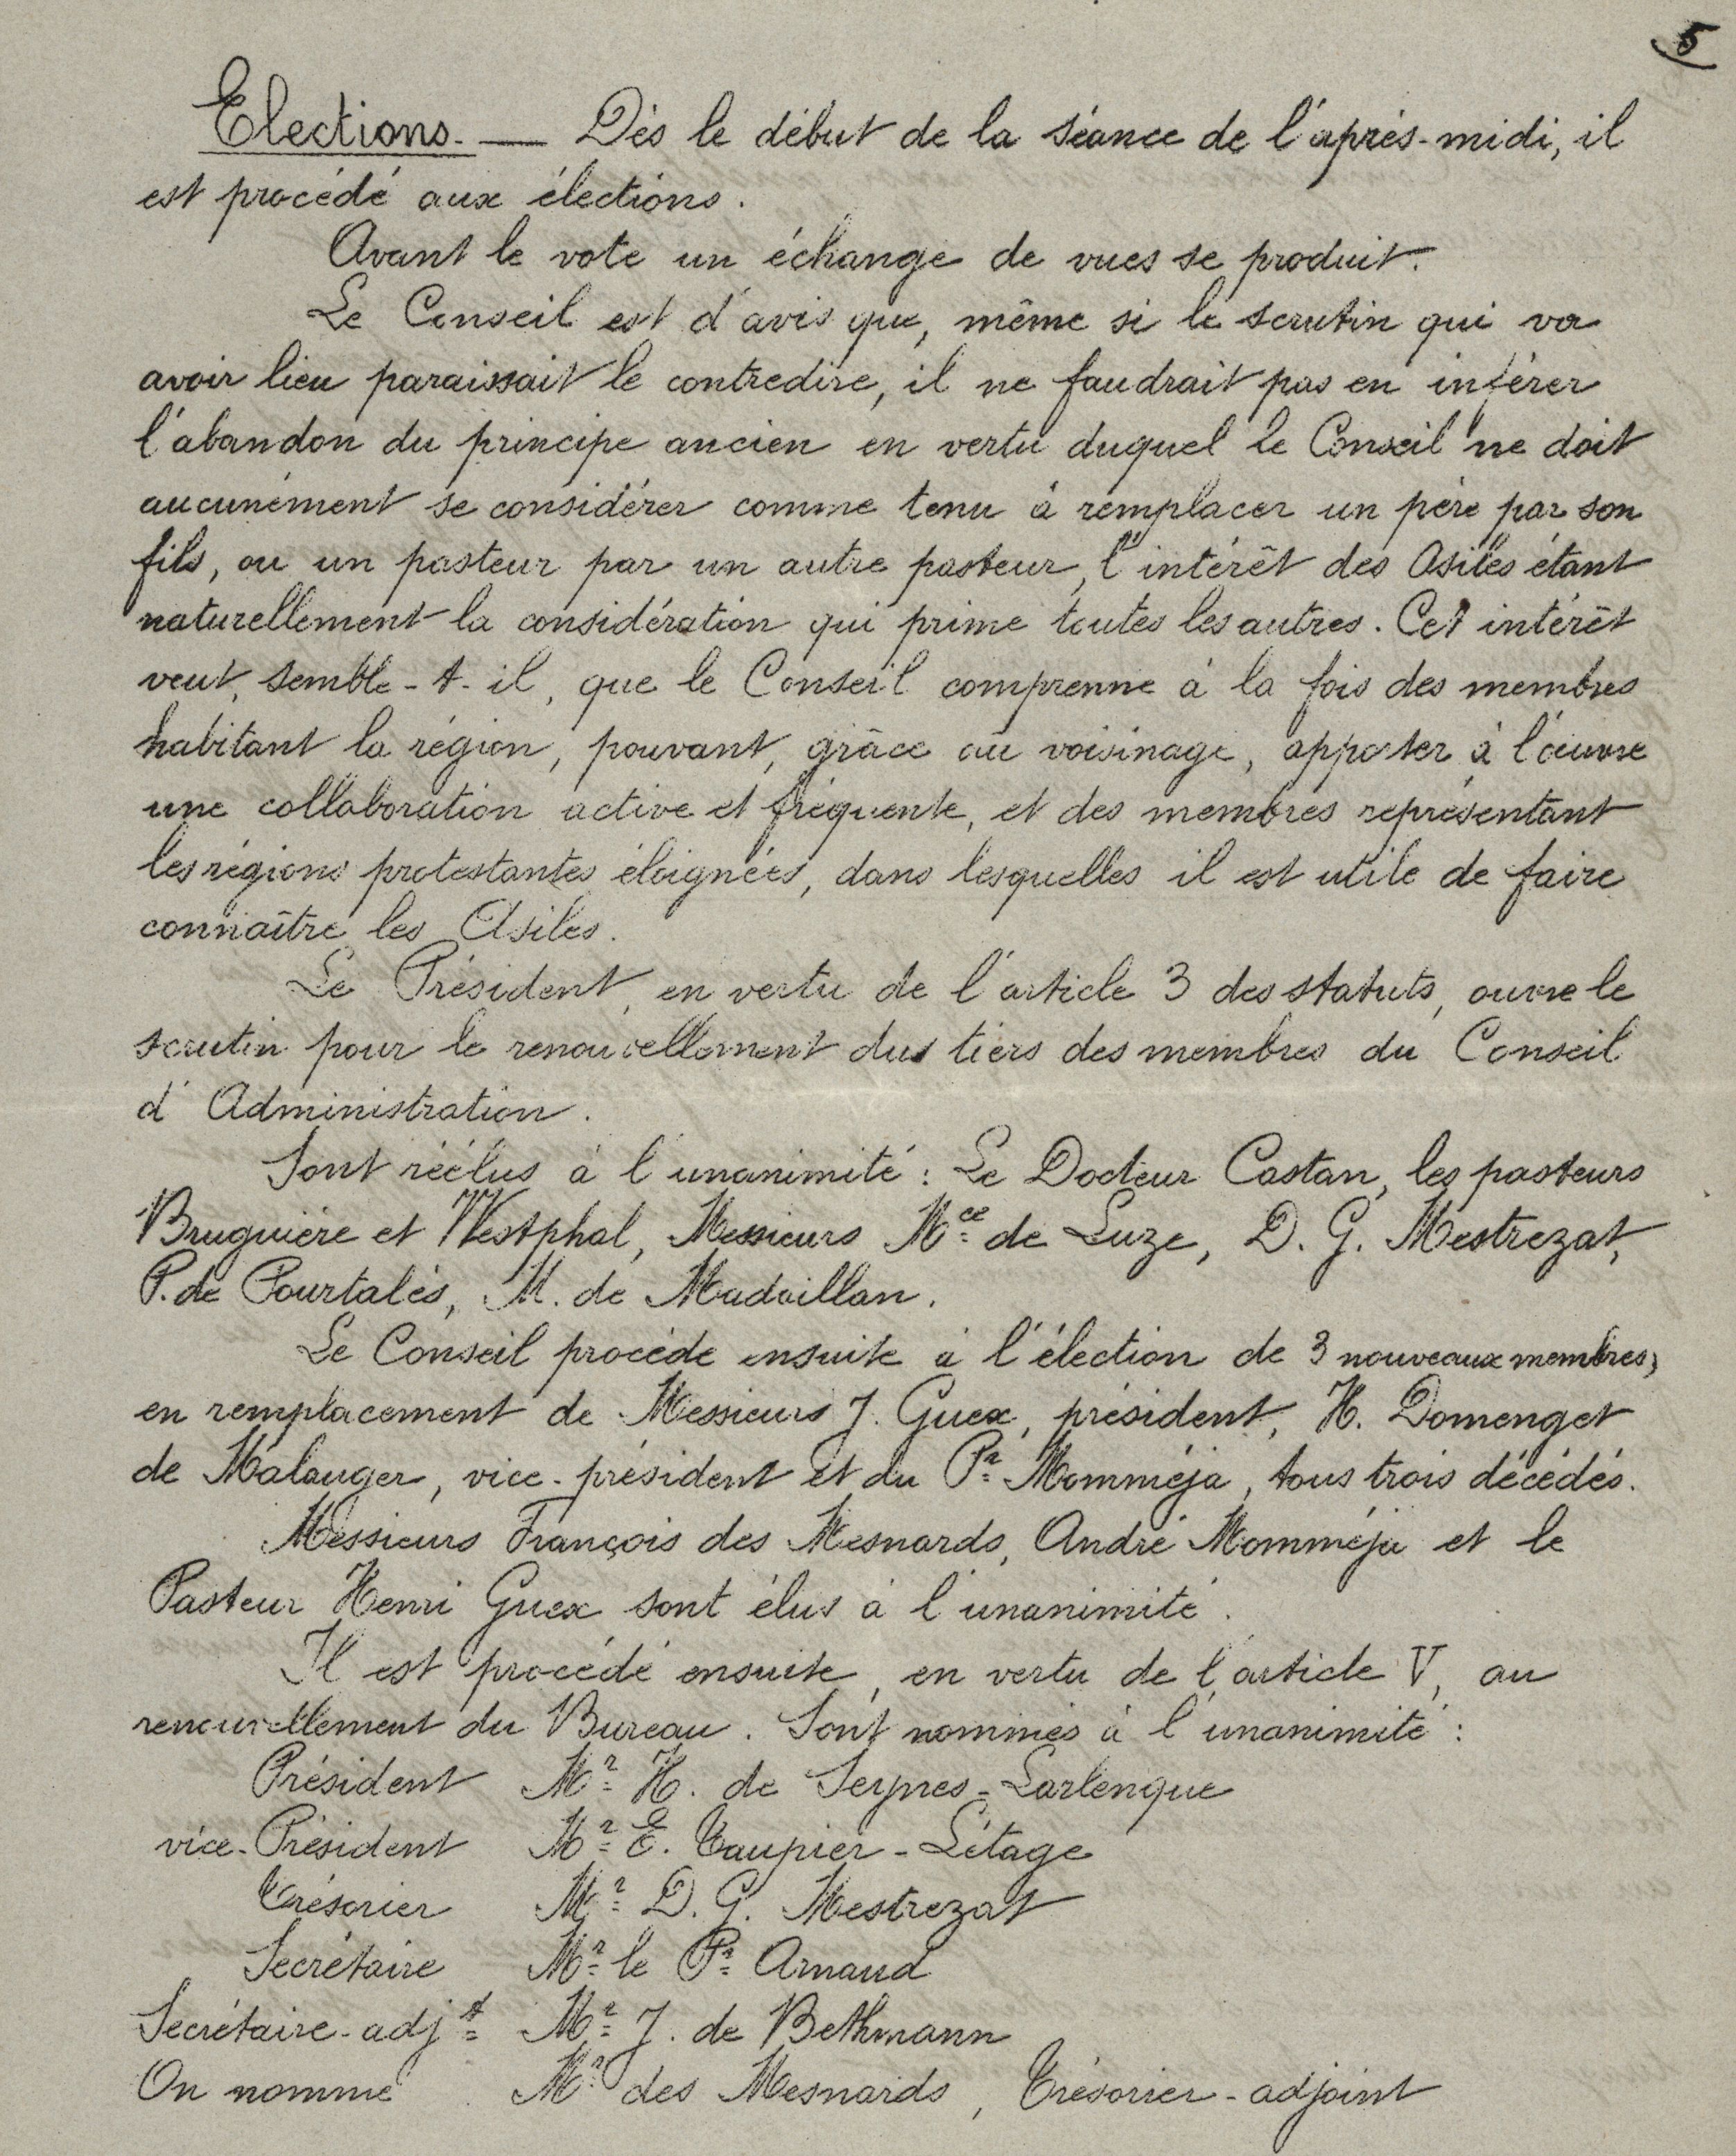 5
Elections. — Dès le début de la séance de l'après-midi, il
est procédé aux élections.
Avant le vote un échange de vues se produit.
Le Conseil est d'avis que, même si le scrutin qui va
avoir lieu paraissait le contredire, il ne faudrait pas en inférer
l'abandon du principe ancien en vertu duquel le Conseil ne doit
aucunément se considérer comme tenu à remplacer un père par son
fils, ou un pasteur par un autre pasteur, l'intérêt des Asiles étant
naturellement la considération qui prime toutes les autres. Cet intérêt
veut, semble-t-il, que le Conseil comprenne à la fois des membres
habitant la région, pouvant, grâce au voisinage, apporter à l'œuvre
une collaboration active et fréquente, et des membres représentant
les régions protestantes éloignées, dans lesquelles il est utile de faire
connaître les Asiles.
Le Président, en vertu de l'article 3 des statuts, ouvre le
scrutin pour le renouvellement du tiers des membres du Conseil
d'Administration.
Sont réélus à l'unanimité : Le Docteur Castan, les pasteurs
Bruguière et Westphal, Messieurs Mce de Luze, D. G. Mestrezat,
P. de Pourtalès, M. de Madaillan.
Le Conseil procède ensuite à l'élection de 3 nouveaux membres,
en remplacement de Messieurs J. Guex, président, H. Domenget
de Malauger, vice-président et du Pr Momméja, tous trois décédés.
Messieurs François des Mesnards, André Momméja et le
Pasteur Henri Guex sont élus à l'unanimité.
Il est procédé ensuite, en vertu de l'article V, au
renouvellement du Bureau. Sont nommés à l'unanimité :
Président Mr H. de Seynes-Larlenque
vice-Président Mr E. Taupier-Létage
Trésorier Mr D. G. Mestrezat
Secrétaire Mr le Pr Arnaud
Secrétaire-adjt Mr J. de Bethmann
On nomme Mr des Mesnards, Trésorier-adjoint